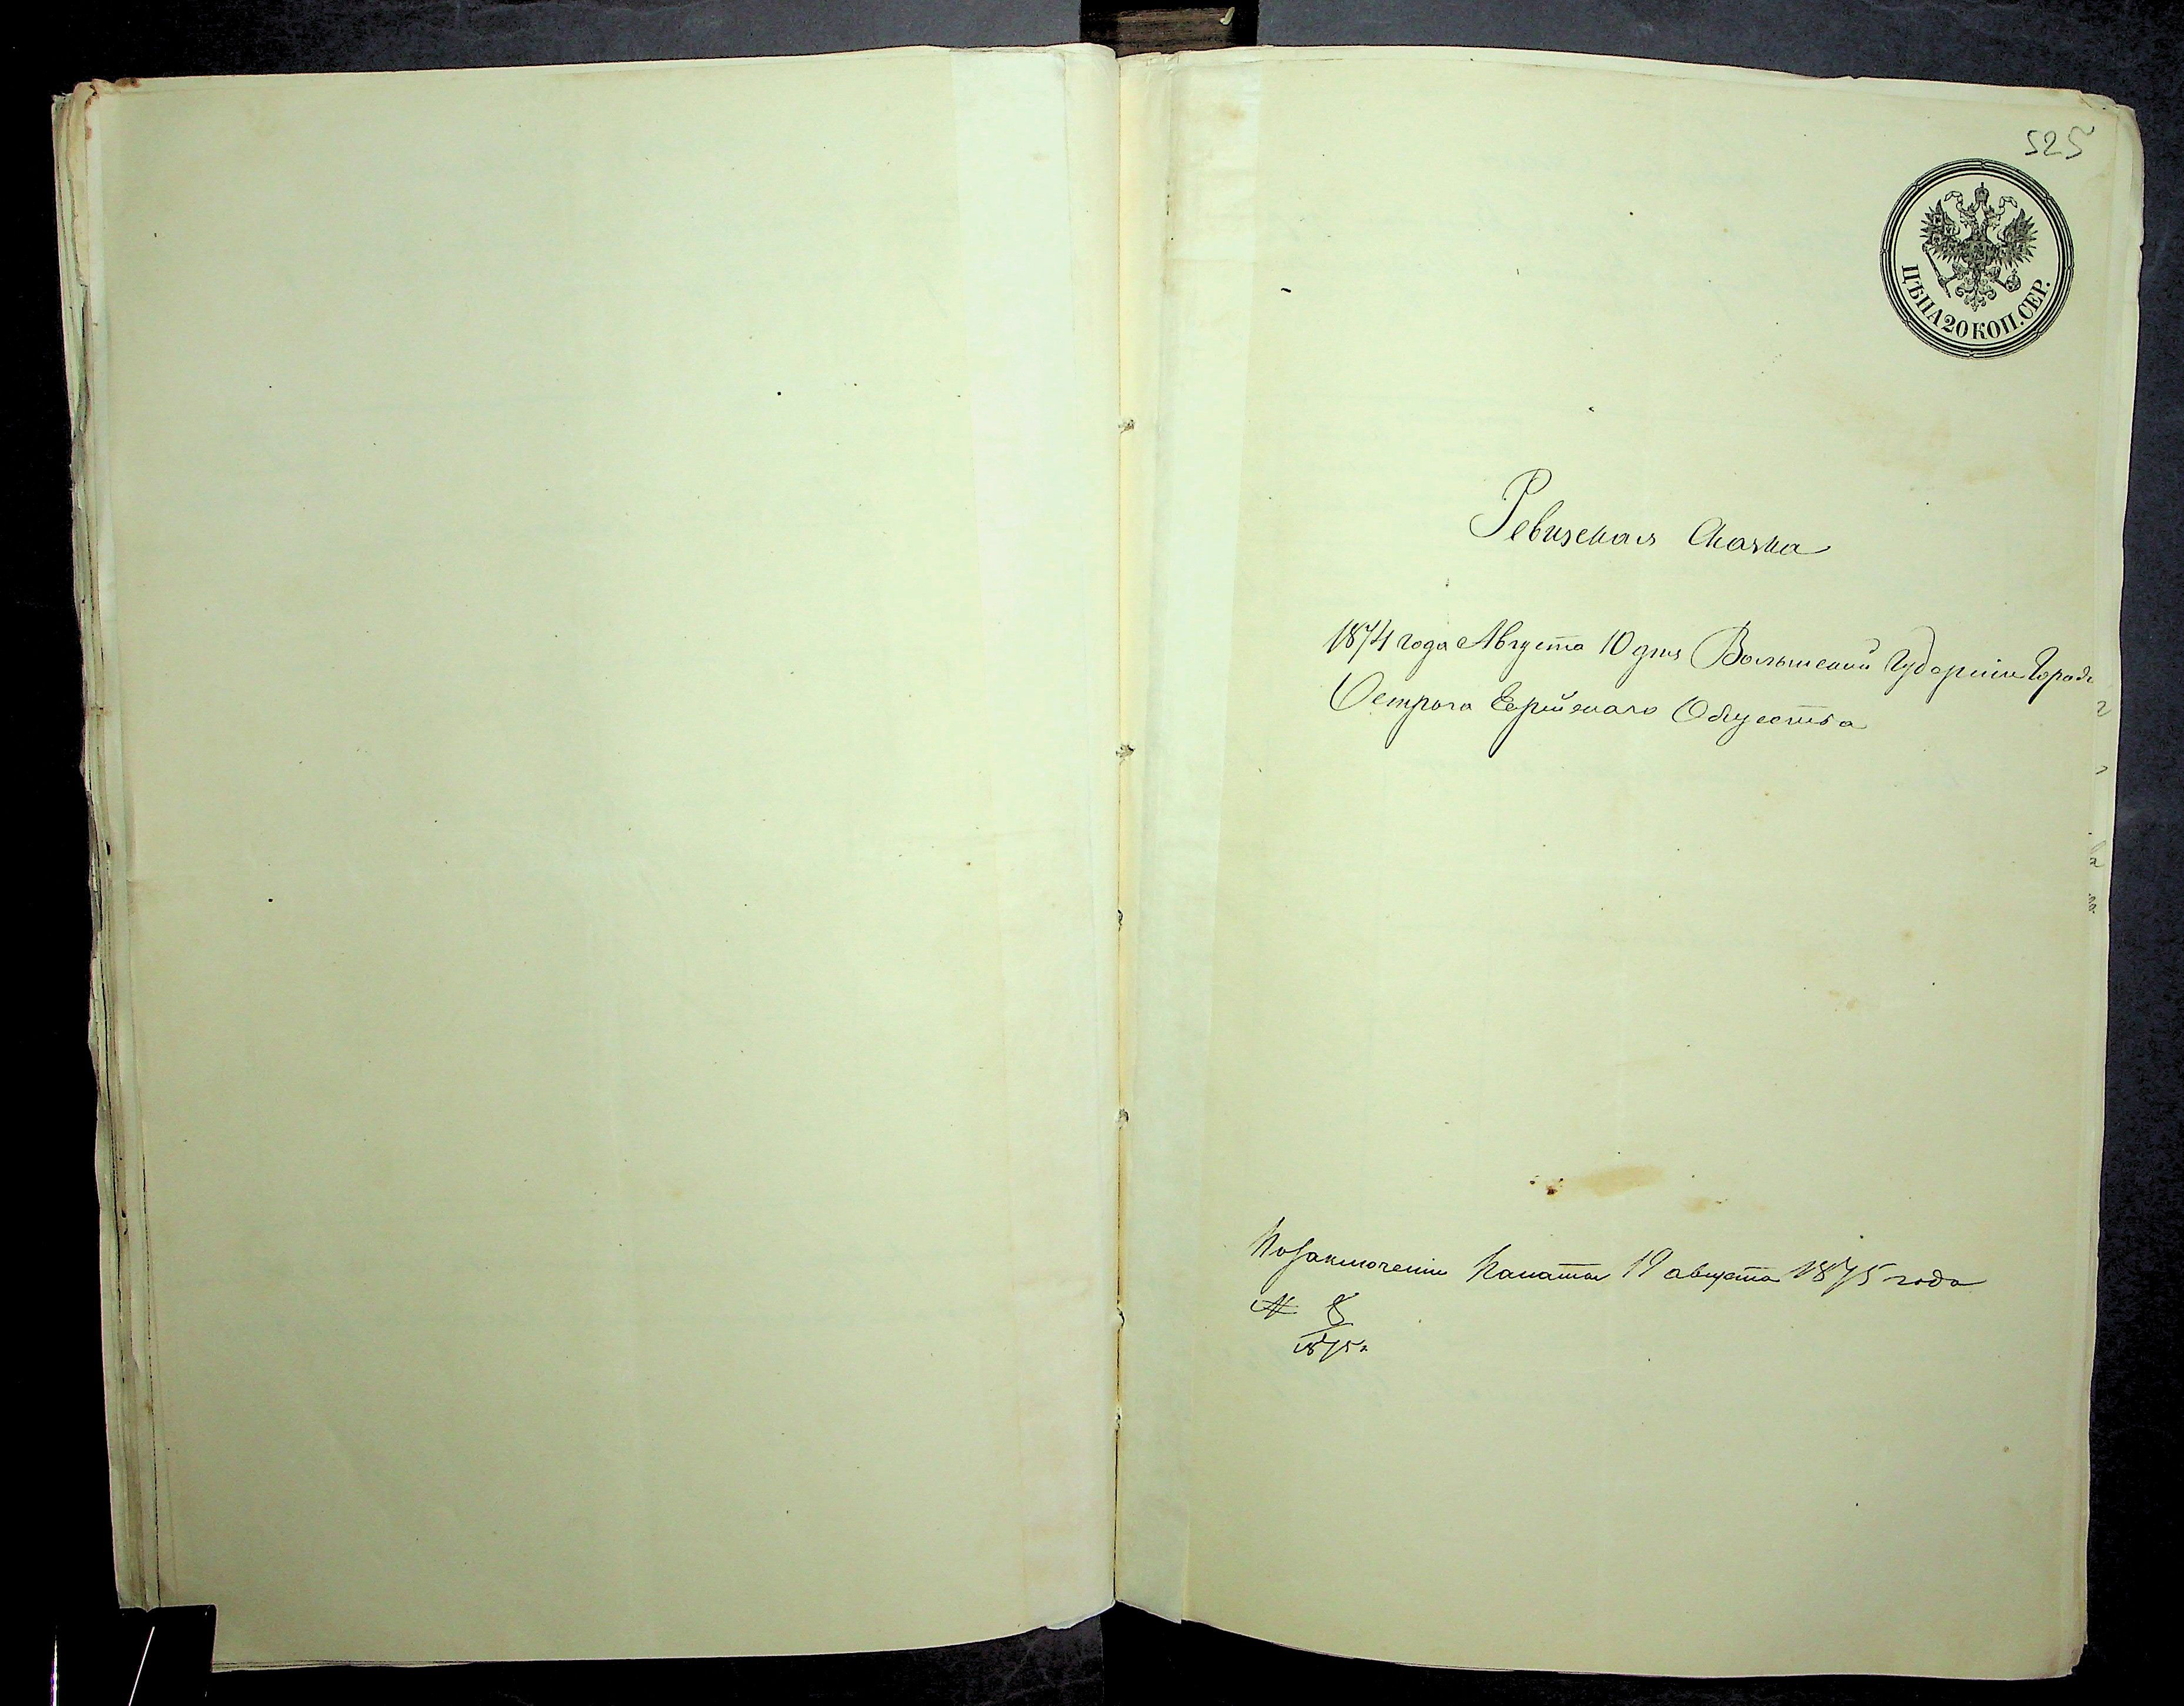 525
ЦѢНА 20 КОП. СЕР.
Ревизская Сказка
1874 года Августа 10 дня Волынской Губерніи Города
Острога Еврейскаго Общества
По заключенію Палаты 19 августа 1875 года
№ 8
1875 г